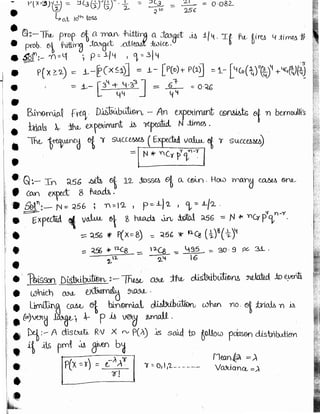 P(X=3)(1/2) = 9C3(1/2)^9(1/2)^... · 1/2 = 9C3/2^10 = 21/256 = 0.082
at 10th toss
Q:- The prop of a man hitting a target is 1/4. If he fires 4 times
prob. of hitting target atleast twice.
Sol^n:- n=4 ; p=1/4 , q=3/4
P(X≥2) = 1-P(X≤1) = 1-[P(0)+P(1)] = 1-[4C0(1/4)^0(3/4)^4 + 4C1(1/4)(3/4)^3]
= 1-[3^4+4·3^3 / 4^4] = 67/4^4 = 0.26
Binomial Freq Distribution - An experiment consists of n bernoulli's
trials & the experiment is repeated N times.
The frequency of r successes (Expected value of r successes)
= N * nCr p^r q^n-r
Q:- In 256 sets of 12 tosses of a coin. How many cases one
can expect 8 heads.
Sol^n:- N=256 ; n=12 , p=1/2 , q=1/2.
Expected value of 8 heads in total 256 = N * nCr p^r q^n-r
= 256 * P(X=8) = 256 * 12C8 (1/2)^8 (1/2)^4
= 256 * 12C8 / 2^12 = 12C8 / 2^4 = 495/16 = 30.9 ≈ 31.
Poisson Distribution :- These are the distributions related to events
which are extremely rare.
Limiting case of binomial distribution when no. of trials n is
very large & p is very small.
Def:- A discrete RV X ~ P(λ) is said to follow poisson distribution
if its pmf is given by
P(X=r) = e^-λ λ^r / r! r=0,1,2------
Mean = λ
Variance = λ